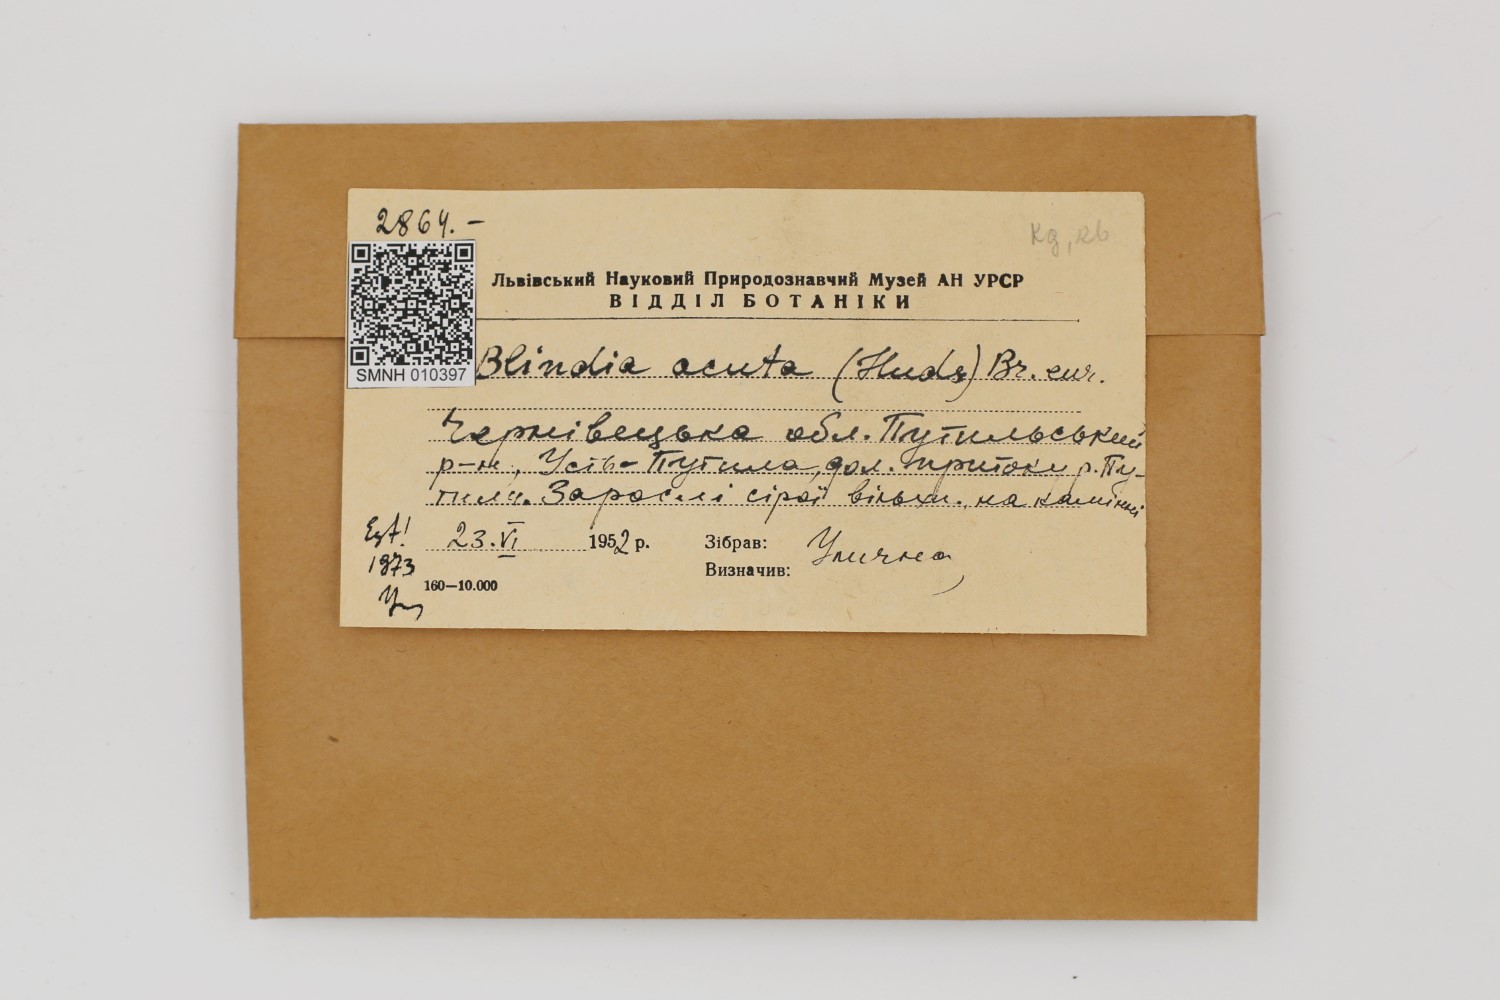 2864.-
Kg, rb
Львівський Науковий Природознавчий Музей АН УРСР
ВІДДІЛ БОТАНІКИ
SMNH 010397
Blindia acuta (Huds) Br. eur.
Чернівецька обл. Путильський
р-н, Усть-Путила, дол. притоку р. Пу-
тили. Зарослі сірої вільхи. на камінні
23.VI 1952 р.
Зібрав: Улична
Визначив:
1973
160—10.000